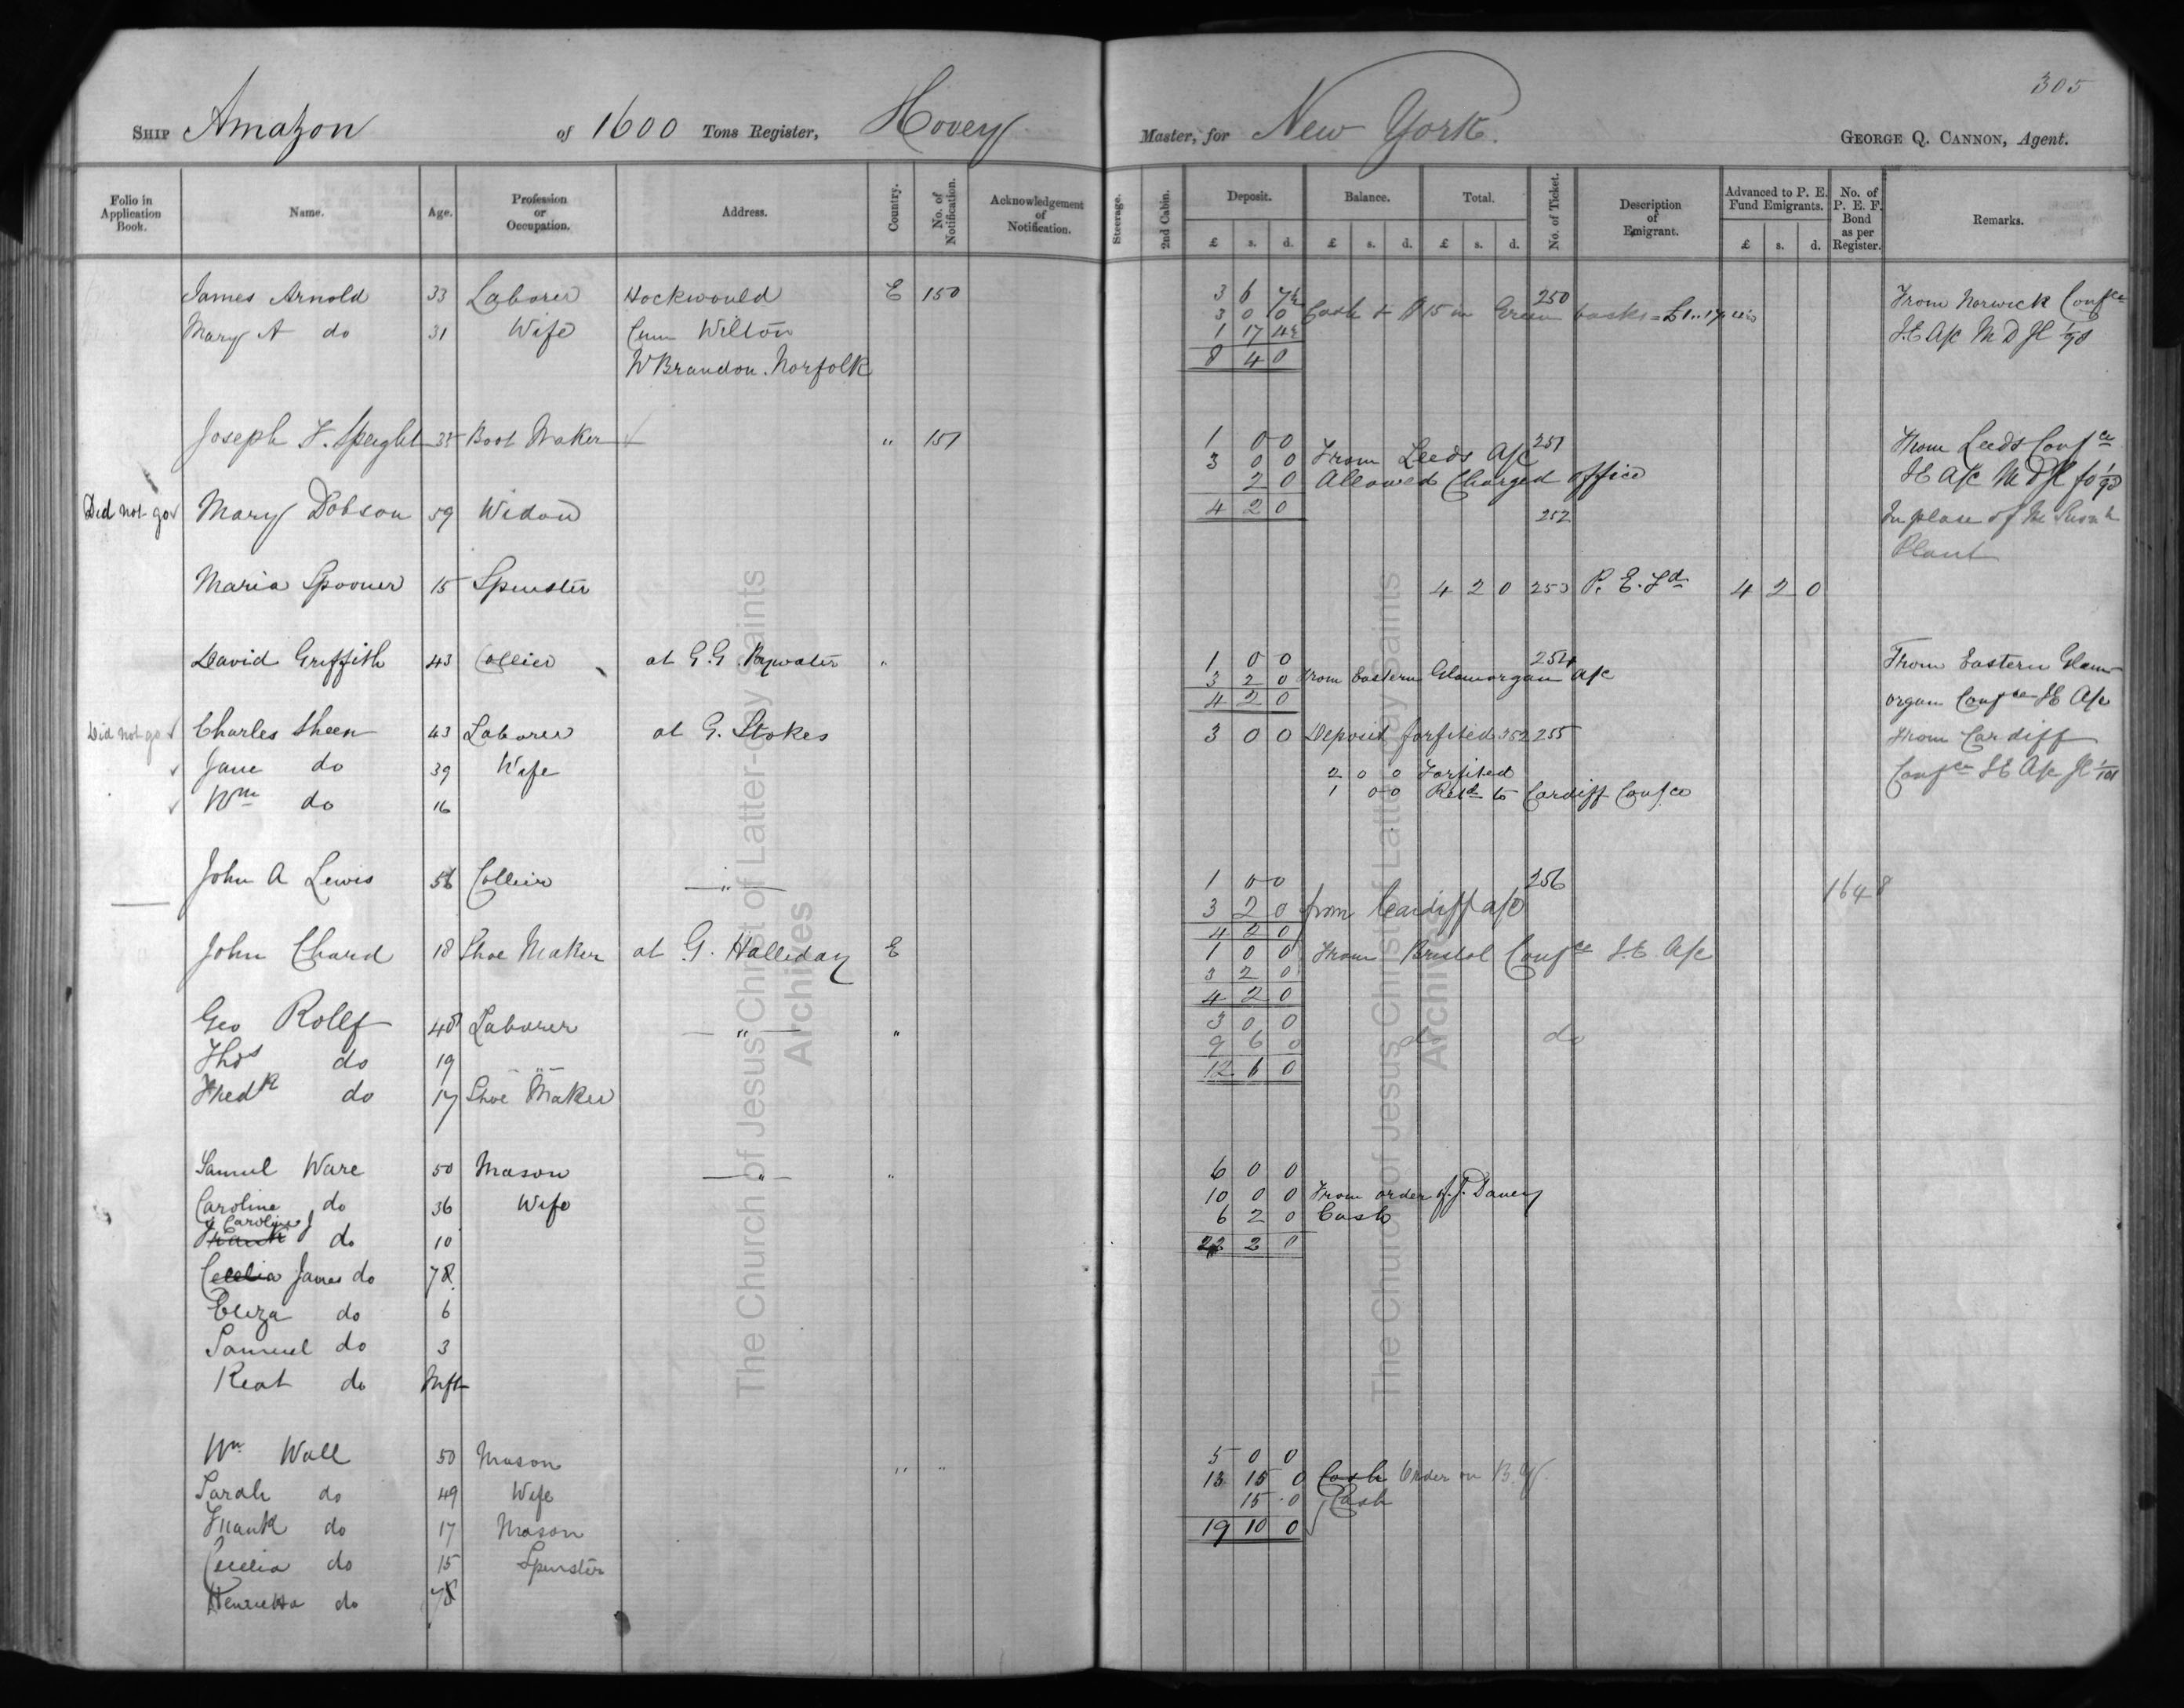 305
SHIP Amazon of 1600 Tons Register, Hovey Master, for New York. GEORGE Q. CANNON, Agent.
Folio in Application Book. Name. Age. Profession or Occupation. Address. Country. No. of Notification. Acknowledgement of Notification. Steerage. 2nd Cabin. Deposit. Balance. Total. No. of Ticket. Description of Emigrant. Advanced to P. E. Fund Emigrants. No. of P. E. F. Bond as per Register. Remarks.
£ s. d. £ s. d. £ s. d. £ s. d.
James Arnold 33 Laborer Hockwould E 150 3 6 7½ 250 From Norwick Confce
Mary A do 31 Wife Cum Wilton 3 0 0 Cash & $15 in Green backs = £1..17 4½ I.E A/c M D Jl
1 17 4½
W Brandon. Norfolk 8 4 0
Joseph F. Speight 35 Boot Maker " 151 1 0 0 251 From Leeds Confce
3 0 0 From Leeds A/c I E A/c M D Jl
2 0 Allowed Charged Office
Did not go Mary Dobson 59 Widow 4 2 0 252 In place of
Plant
Maria Spooner 15 Spinster 4 2 0 253 P. E. Fd 4 2 0
David Griffith 43 Collier at G.G. Bywater " 1 0 0 254 From Eastern Glam-
3 2 0 From Eastern Glamorgan A/c
4 2 0 organ Confce I E A/c
Did not go Charles Sheen 43 Laborer at G. Stokes 3 0 0 Deposit forfited 352 255 From Cardiff
Jane do 39 Wife 2 0 0 Forfited Confce I E A/c Jl
Wm do 16 1 0 0 Retd to Cardiff Confce
John A Lewis 56 Collier — " — 1 0 0 256 1648
3 2 0 from Cardiff a/c
4 2 0
John Chard 18 Shoe Maker at G. Halliday E 1 0 0 From Bristol Confce I.E. A/c
3 2 0
4 2 0
Geo Rolf 48 Laborer — " — " 3 0 0
9 6 0 do do
Thos do 19 12 6 0
Fredk do 17 Shoe Maker
Samuel Ware 50 Mason — " — " 6 0 0
Caroline do 36 Wife 10 0 0 From order J. Davey
Caroline 6 2 0 Cash
Frank do 10 22 2 0
Cecelia James do 78
Eliza do 6
Samuel do 3
Keat do Inft
Wm Wall 50 Mason " " 5 0 0
13 15 0 Cash Order on B.Y.
Sarah do 49 Wife 15 0 Cash
Frank do 17 Mason 19 10 0
Cecelia do 15 Spinster
Henrietta do 78
The Church of Jesus Christ of Latter-day Saints
Archives
The Church of Jesus Christ of Latter-day Saints
Archives